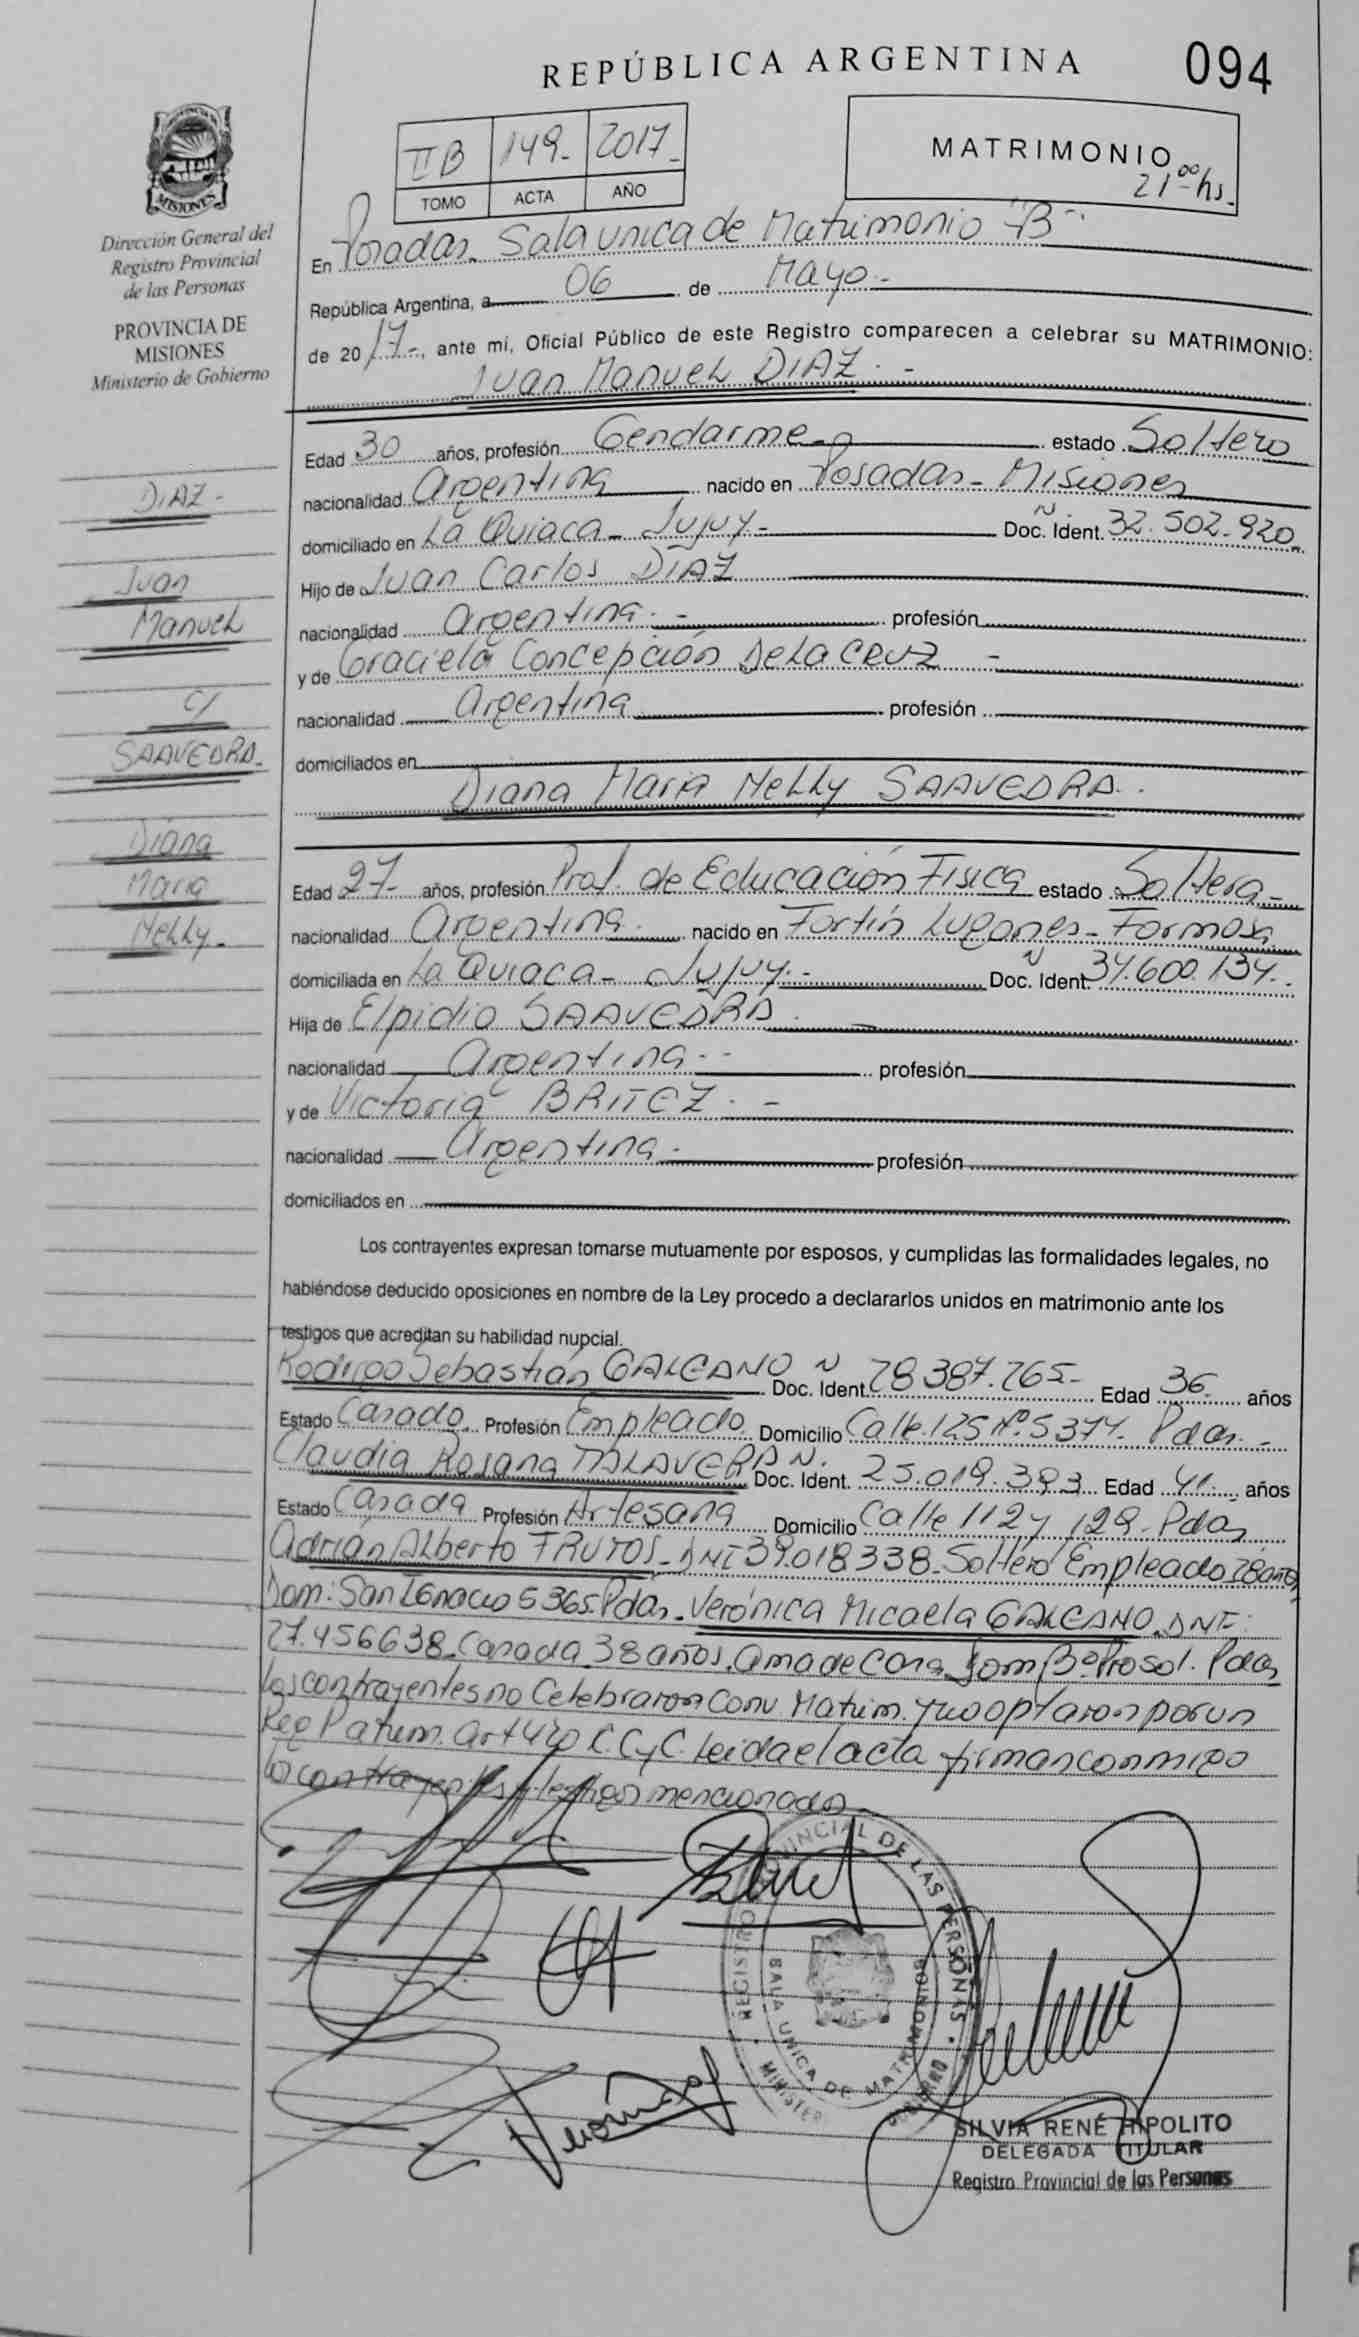 REPÚBLICA ARGENTINA 094
PROVINCIA DE
MISIONES
Dirección General del
Registro Provincial
de las Personas
PROVINCIA DE
MISIONES
Ministerio de Gobierno
II B 149- 2017-
TOMO ACTA AÑO
MATRIMONIO
21 00 hs.
En Posadas. Sala unica de Matrimonio "B"-
República Argentina, a 06 de Mayo.-
de 2017-, ante mí, Oficial Público de este Registro comparecen a celebrar su MATRIMONIO:
Juan Manuel DIAZ.-
Edad 30 años, profesión Gendarme- estado Soltero
nacionalidad Argentina nacido en Posadas- Misiones
domiciliado en La Quiaca- Jujuy- Doc. Ident. N 32.502.920-
Hijo de Juan Carlos DIAZ
nacionalidad Argentina.- profesión
y de Graciela Concepción DE LA CRUZ -
nacionalidad Argentina profesión
domiciliados en
Diana Maria Nelly SAAVEDRA.
Edad 27- años, profesión Prof. de Educación Física estado Soltera-
nacionalidad Argentina. nacido en Fortín Lugones- Formosa
domiciliada en La Quiaca- Jujuy.- Doc. Ident. N 34.600.134.
Hija de Elpidio SAAVEDRA.
nacionalidad Argentina.- profesión
y de Victoria BRITEZ.-
nacionalidad Argentina- profesión
domiciliados en
DIAZ-
Juan
Manuel
c/
SAAVEDRA-
Diana
Maria
Nelly-
Los contrayentes expresan tomarse mutuamente por esposos, y cumplidas las formalidades legales, no
habiéndose deducido oposiciones en nombre de la Ley procedo a declararlos unidos en matrimonio ante los
testigos que acreditan su habilidad nupcial.
Rodrigo Sebastián GALEANO Doc. Ident. N 28.387.265- Edad 36. años
Estado Casado. Profesión Empleado Domicilio Calle 125 Nº 5374. Pdas.-
Claudia Rosana TALAVERA Doc. Ident. N. 25.019.393 Edad 41. años
Estado Casada Profesión Artesana Domicilio Calle 112 y 129- Pdas
Adrián Alberto FRUTOS- DNI 39.018338- Soltero Empleado 28 años
Dom: San Ignacio 5365. Pdas- Verónica Micaela GALEANO. DNI:
27.456638. Casada 38 años. ama de Casa Dom Bº Prosol. Pdas
Los contrayentes no Celebraron Conv. Matrim. y no optaron por un
Reg Patrim. C.C y C. Leida el acta firman conmigo
los contrayentes y testigos mencionados-
REGISTRO PROVINCIAL DE LAS PERSONAS
SALA UNICA DE MATRIMONIOS
SILVIA RENÉ HIPOLITO
DELEGADA TITULAR
Registro Provincial de las Personas